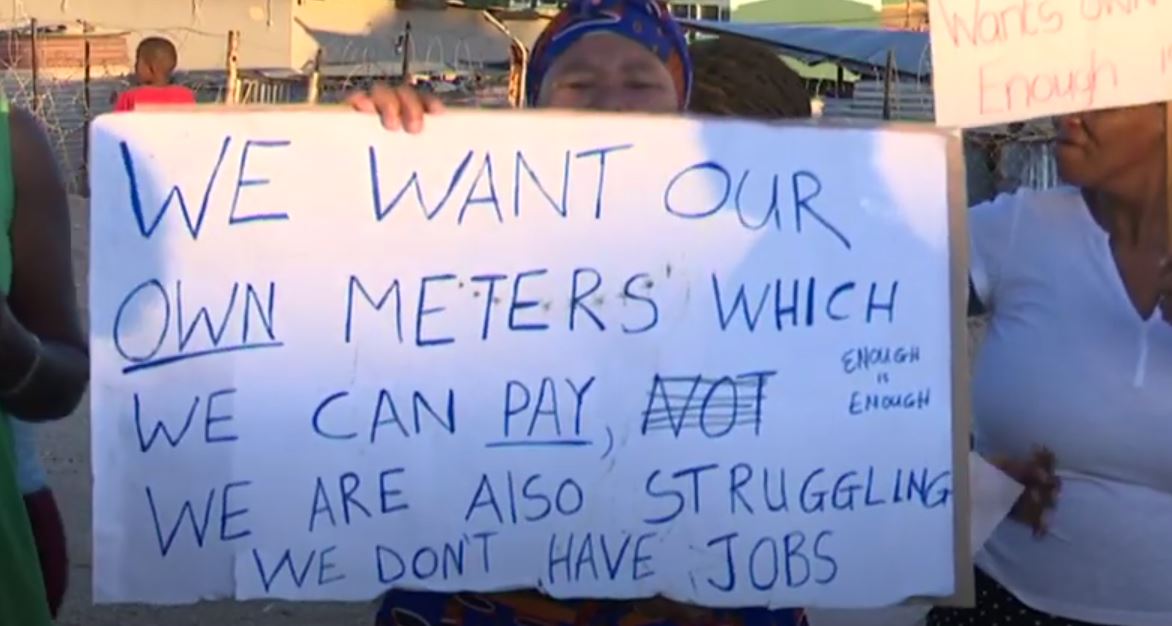 WE WANT OUR
OWN METERS' WHICH
WE CAN PAY, NOT
ENOUGH
IS
ENOUGH
WE ARE AlSO STRUGGLING
WE DON'T HAVE JOBS
Wants
Enough